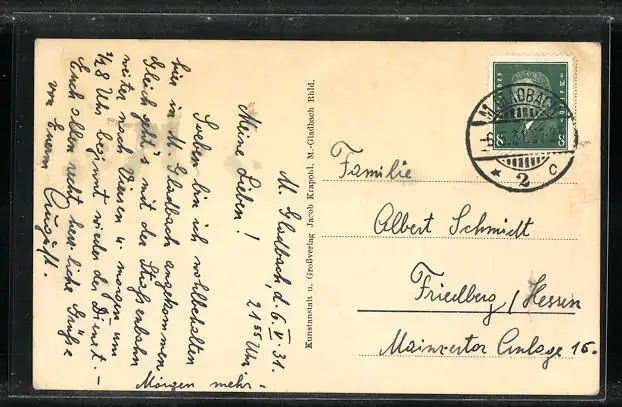 M. Gladbach, d. 6.V.31.
21⁵⁵ Uhr.
Meine Lieben!
Soeben bin ich wohlbehalten
hier in M. Gladbach angekommen.
Gleich geht's mit der Straßenbahn
weiter nach Viersen u. morgen um
½8 Uhr beginnt wieder der Dienst. –
Euch allen recht herzliche Grüße
von Eurem August.
Morgen mehr. –
Kunstanstalt u. Großverlag Jacob Krapohl, M.-Gladbach Rhld.
Familie
Albert Schmidt
Friedberg / Hessen
Mainzertor Anlage 15.
8 8
2 c